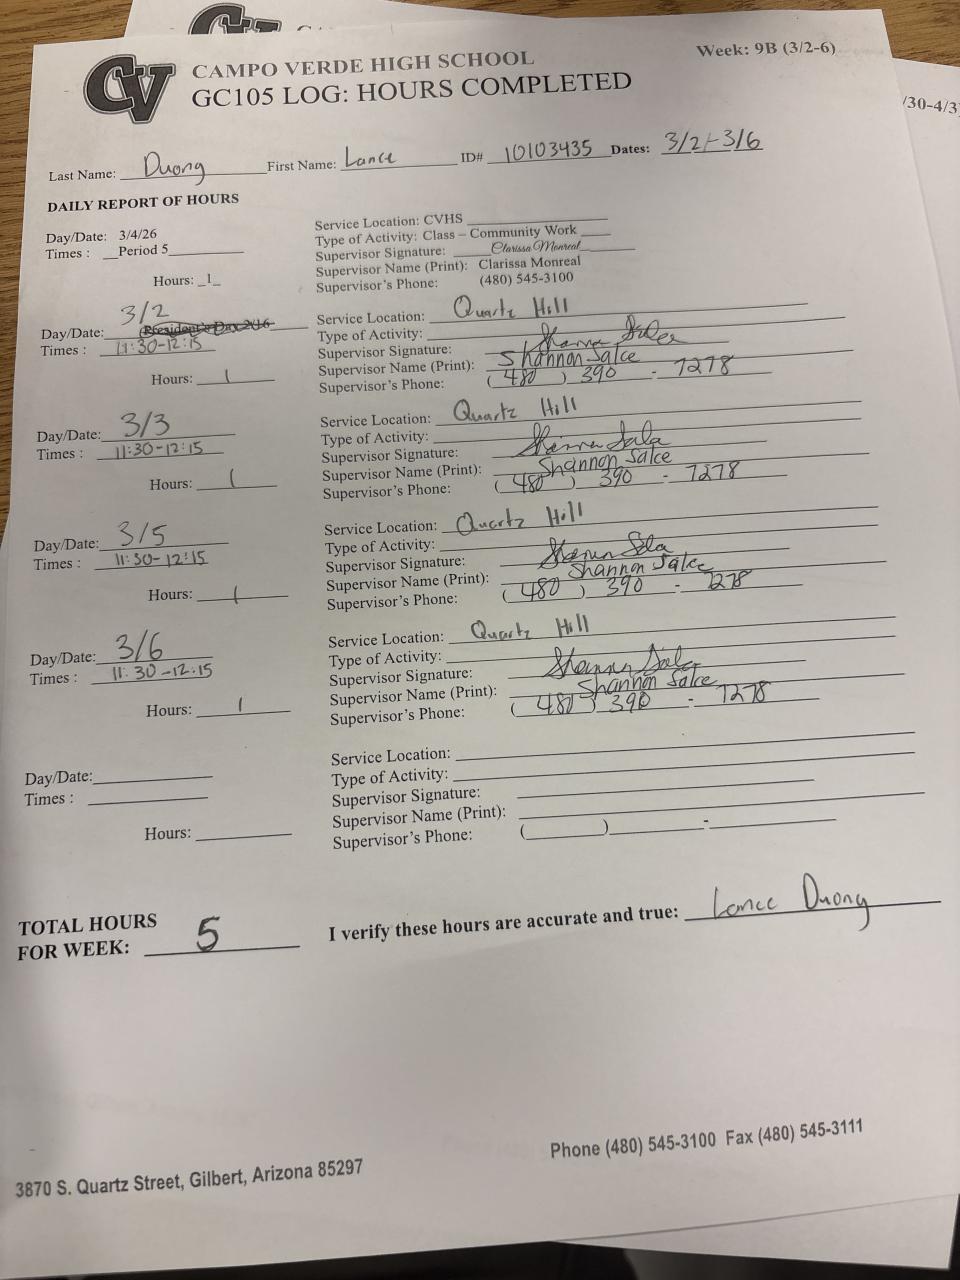 CV
CAMPO VERDE HIGH SCHOOL
Week: 9B (3/2-6)
GC105 LOG: HOURS COMPLETED
/30-4/3)
Last Name: Duong First Name: Lance ID# 10103435 Dates: 3/2-3/6
DAILY REPORT OF HOURS
Day/Date: 3/4/26
Times : Period 5
Hours: 1
Service Location: CVHS
Type of Activity: Class – Community Work
Supervisor Signature: Clarissa Monreal
Supervisor Name (Print): Clarissa Monreal
Supervisor's Phone: (480) 545-3100
Day/Date: 3/2
Times : 11:30-12:15
Hours: 1
Service Location: Quartz Hill
Type of Activity:
Supervisor Signature: Shannon
Supervisor Name (Print): Shannon Salce
Supervisor's Phone: (480) 390 - 7278
Day/Date: 3/3
Times : 11:30-12:15
Hours: 1
Service Location: Quartz Hill
Type of Activity:
Supervisor Signature: Shannon
Supervisor Name (Print): Shannon Salce
Supervisor's Phone: (480) 390 - 7278
Day/Date: 3/5
Times : 11:30-12:15
Hours: 1
Service Location: Quartz Hill
Type of Activity:
Supervisor Signature: Shannon
Supervisor Name (Print): Shannon Salce
Supervisor's Phone: (480) 390 - 7278
Day/Date: 3/6
Times : 11:30-12:15
Hours: 1
Service Location: Quartz Hill
Type of Activity:
Supervisor Signature: Shannon
Supervisor Name (Print): Shannon Salce
Supervisor's Phone: (480) 390 - 7278
Day/Date:
Times :
Hours:
Service Location:
Type of Activity:
Supervisor Signature:
Supervisor Name (Print):
Supervisor's Phone: ( ) -
TOTAL HOURS
FOR WEEK: 5
I verify these hours are accurate and true: Lance Duong
3870 S. Quartz Street, Gilbert, Arizona 85297
Phone (480) 545-3100 Fax (480) 545-3111